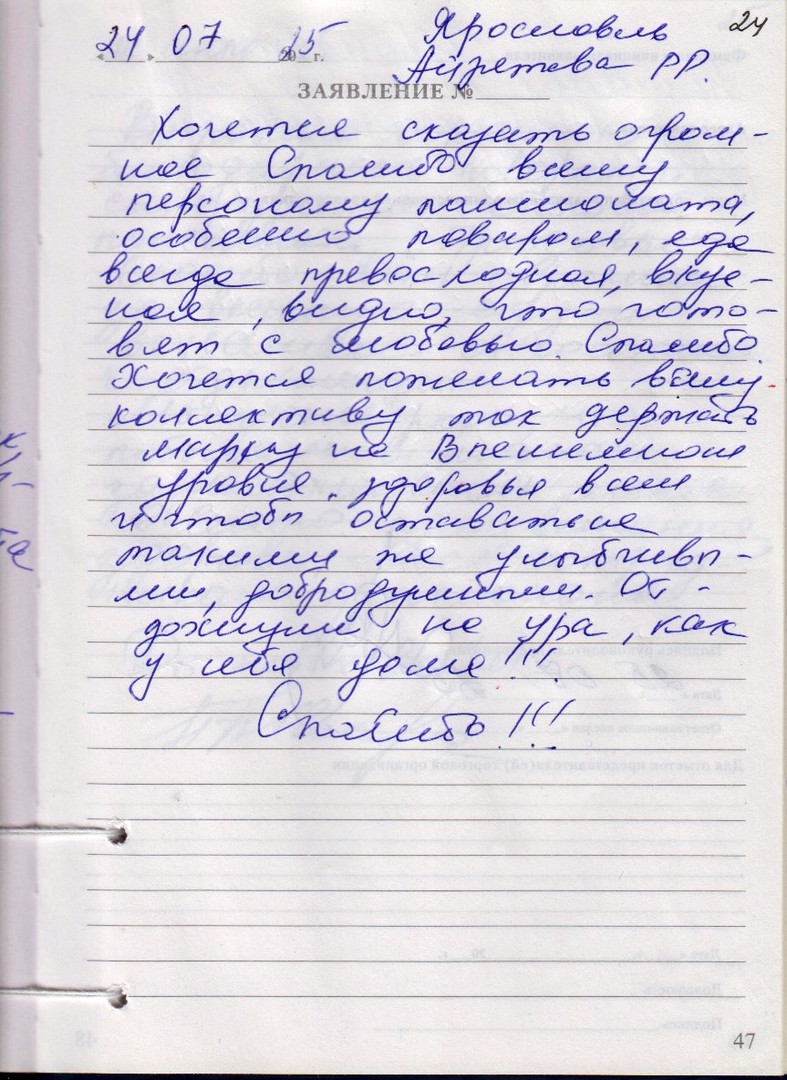 Ярославль 24
«24» 07 2015 г.
Р.Р.
ЗАЯВЛЕНИЕ №
Хочется сказать огром-
ное Спасибо всему
персоналу пансионата,
особенно поварам, еда
всегда превосходная, вкус-
ная, видно, что гото-
вят с любовью. Спасибо.
Хочется пожелать всему
коллективу так держать
марку на
уровне, здоровья всем
и чтобы оставаться
такими же улыбчивы-
ми, добродушными. От-
дохнули на ура, как
у себя дома!!!
Спасибо!!!
47